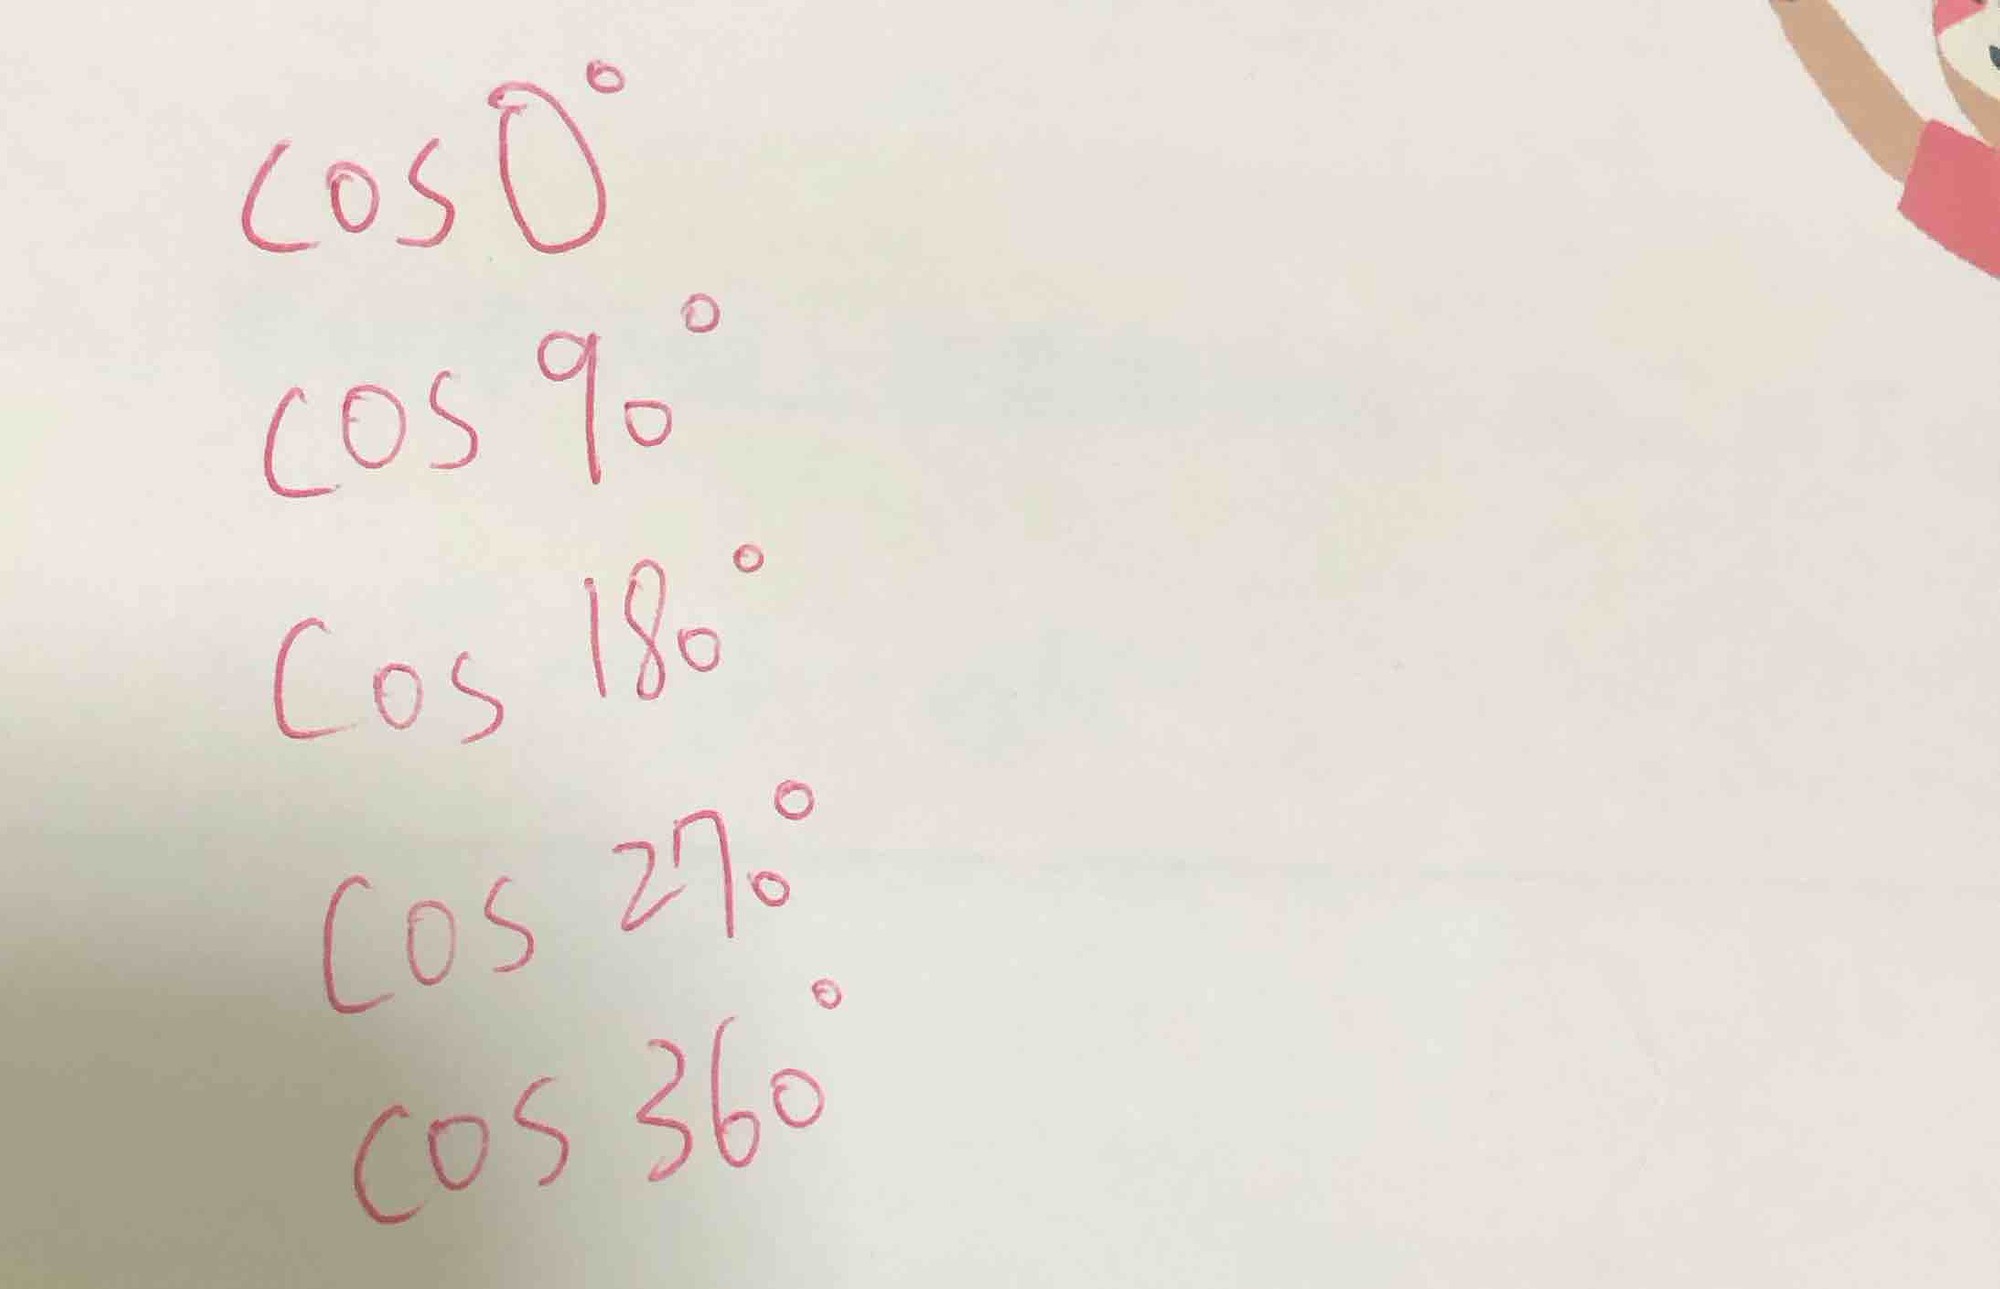 cos 0°
cos 90°
cos 180°
cos 270°
cos 360°